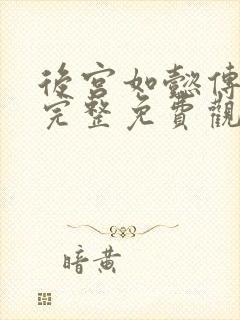 後宮如懿傳
完整免費觀
暗黄